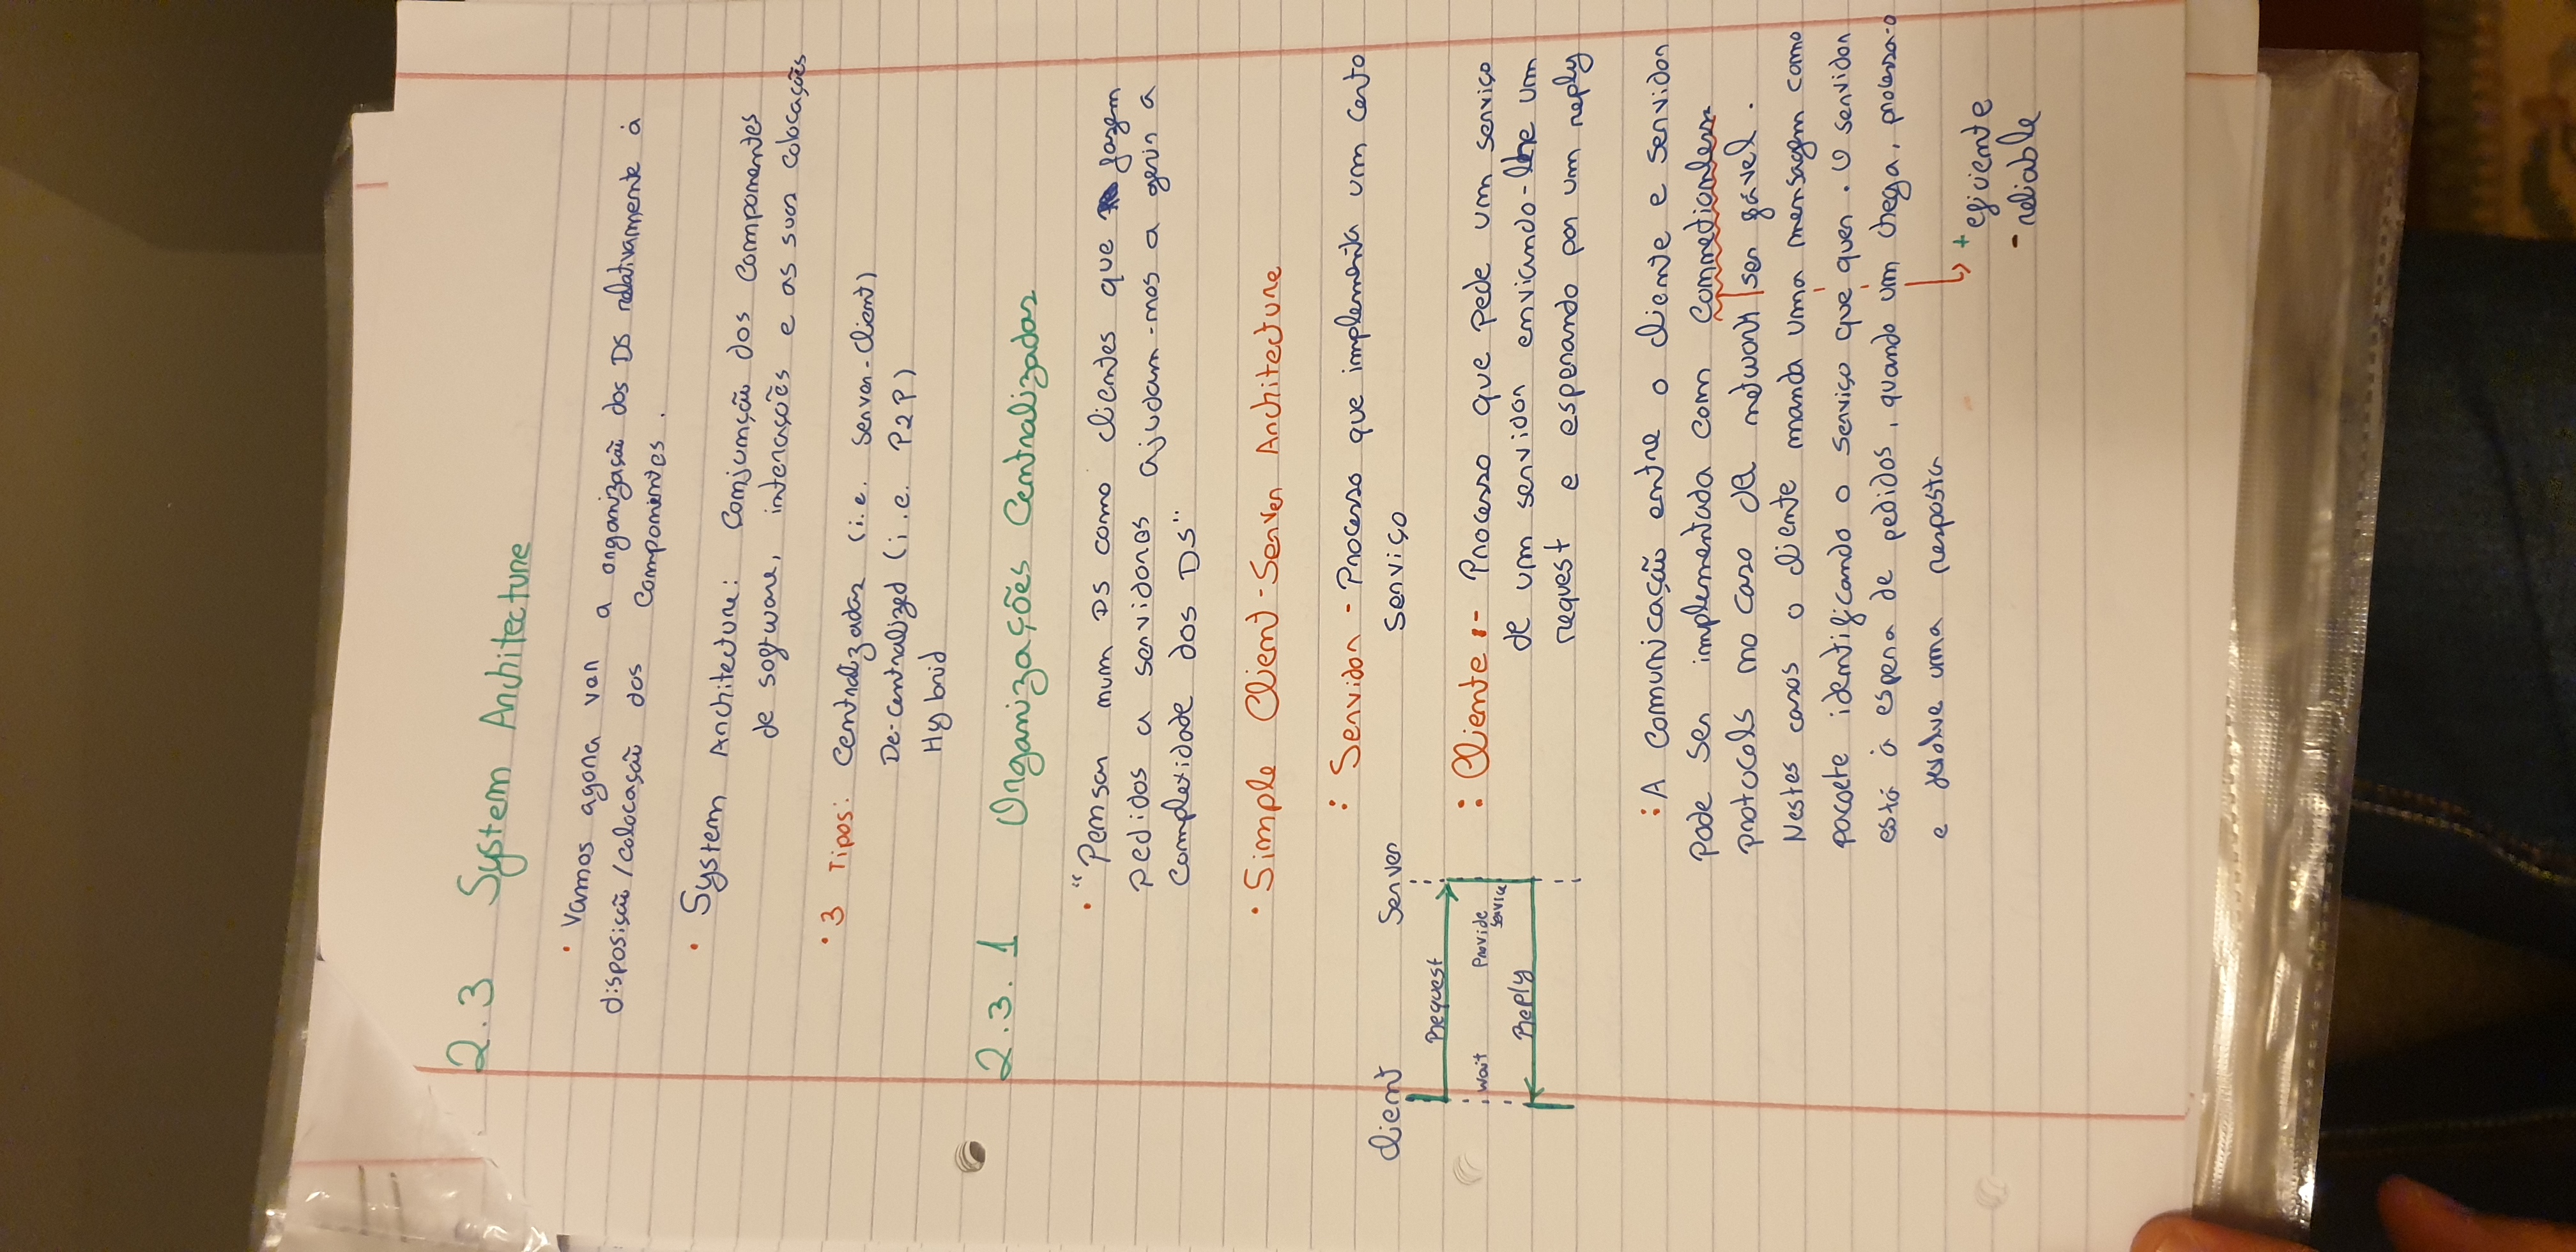 2.3 System Architecture
• Vamos agora ver a organização dos DS relativamente à
disposição/colocação dos componentes.
• System Architecture: Conjunção dos componentes
de software, interações e as suas colocações
• 3 Tipos: Centralizadas (i.e. Server-Client)
De-centralized (i.e. P2P)
Hybrid
2.3.1 Organizações Centralizadas
• "Pensar num DS como clientes que fazem
pedidos a servidores ajudam-nos a gerir a
complexidade dos DS"
• Simple Client-Server Architecture
: Servidor - Processo que implementa um certo
serviço
Client Server
Request
wait Provide
service
Reply
: Cliente :- Processo que pede um serviço
de um servidor enviando-lhe um
request e esperando por um reply
: A comunicação entre o cliente e servidor
pode ser implementada com Connectionless
protocols no caso da network ser fiável.
Nestes casos o cliente manda uma mensagem como
pacote identificando o serviço que quer. O servidor
está à espera de pedidos, quando um chega, processa-o
e devolve uma resposta
+ eficiente
- reliable